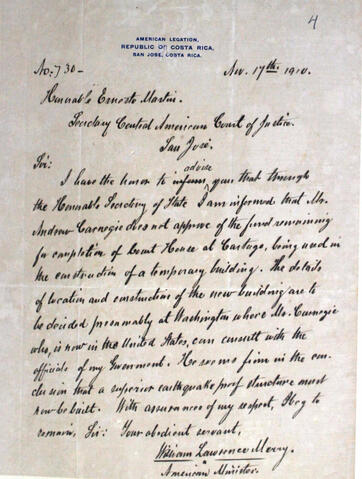 4
AMERICAN LEGATION,
REPUBLIC OF COSTA RICA,
SAN JOSÉ, COSTA RICA.
No: 730 - Nov. 17th 1910.
Honorable Ernesto Martin.
Secretary Central American Court of Justice.
San José.
Sir:
advise
I have the honor to inform you that through
the Honorable Secretary of State I am informed that Mr.
Andrew Carnegie does not approve of the fund remaining
for completion of Court House at Cartago, being used in
the construction of a temporary building. The details
of location and construction of the new building are to
be decided presumably at Washington where Mr. Carnegie
who, is now in the United States, can consult with the
officials of my Government. He seems firm in the con-
clusion that a superior earthquake proof structure must
now be built. With assurances of my respect, I beg to
remain, Sir: Your obedient servant,
William Lawrence Merry.
American Minister.